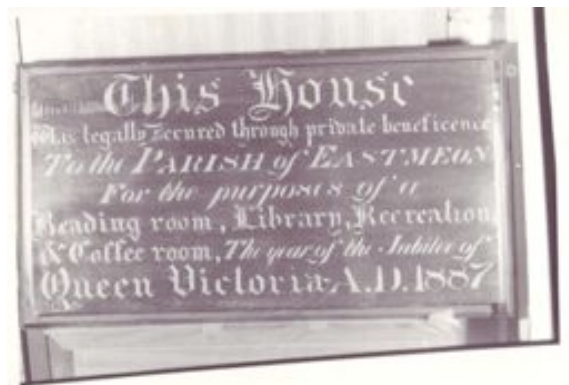 This House
Was legally Secured through private beneficence
To the PARISH of EASTMEON
For the purposes of a
Reading room, Library, Recreation,
& Coffee room, The year of the Jubilee of
Queen Victoria A.D. 1887